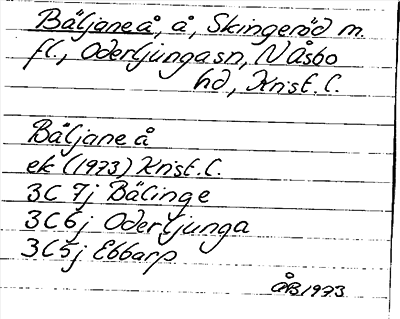 Bäljaneå, å, Skingeröd m.
fl., Oderljungasn, N Åsbo
hd, Krist. l.
Bäljane å
ek (1973) Krist. l.
3C 7j Bälinge
3C 6j Oderljunga
3C 5j Ebbarp
ÅB 1973